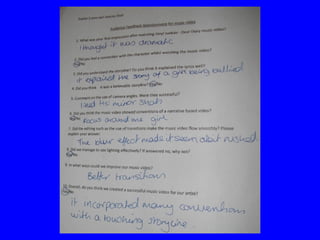 Audience feedback questionnaire for music video
1. What was your first impression after watching
music video?
I thought it was dramatic
2. Did you feel a connection with the character whilst watching the music video?
3. Did you understand the storyline? Do you think it explained the lyrics well?
it explained the story of a girl being bullied
4. Did you think it was a believable storyline?
5. Comment on the use of camera angles. Were they successful?
I liked the mirror shots
6. Did you think the music video showed conventions of a narrative based video?
focus around one girl
7. Did the editing such as the use of transitions make the music video flow smoothly? Please
explain your answer
The blur effect made it seem
8. Did we manage to use lighting effectively? If answered no, why not?
9. In what ways could we improve our music video?
Better transitions
10. Overall, do you think we created a successful music video for our artist?
it incorporated many conventions
with a touching storyline